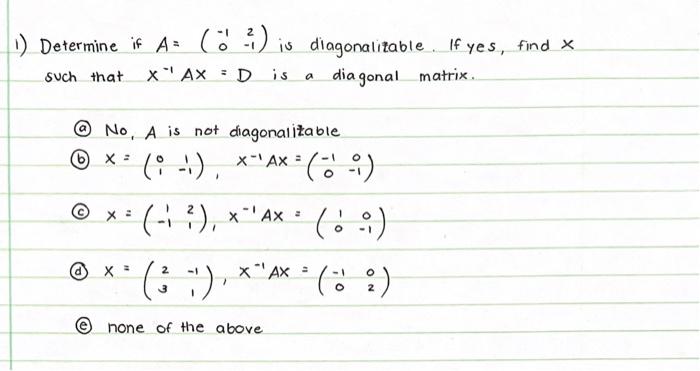 1) Determine if A = ( -1 2 ; 0 -1 ) is diagonalizable. If yes, find X
such that X⁻¹ AX = D is a diagonal matrix.
ⓐ No, A is not diagonalizable
ⓑ X = ( 0 1 ; 1 -1 ), X⁻¹ AX = ( -1 0 ; 0 -1 )
ⓒ X = ( 1 2 ; -1 1 ), X⁻¹ AX = ( 1 0 ; 0 -1 )
ⓓ X = ( 2 -1 ; 3 1 ), X⁻¹ AX = ( -1 0 ; 0 2 )
ⓔ none of the above